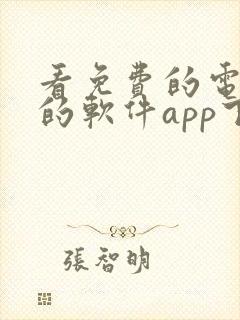 看免費的電
的軟件app
張智明